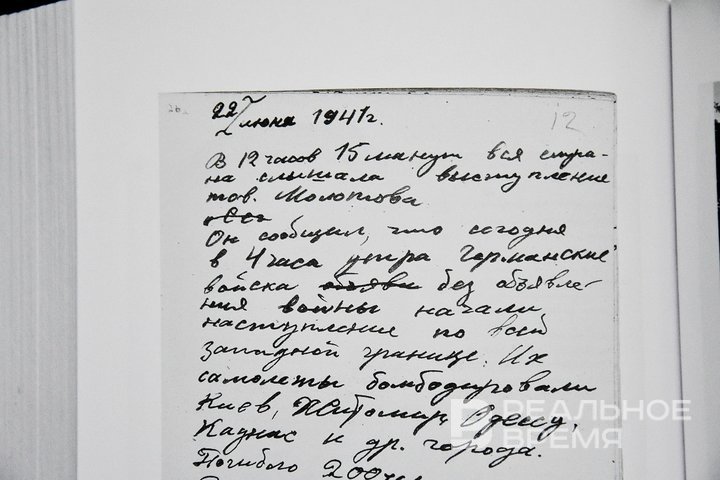 22 июня 1941г.
12
В 12 часов 15 минут вся стра-
на слышала выступление
тов. Молотова
Он сообщил, что сегодня
в 4 часа утра Германские
войска объяви без объявле-
ния войны начали
наступление по всей
западной границе. Их
самолеты бомбодировали
Киев, Житомир, Одессу,
Каунас и др. города.
Погибло 200
РЕАЛЬНОЕ
ВРЕМЯ